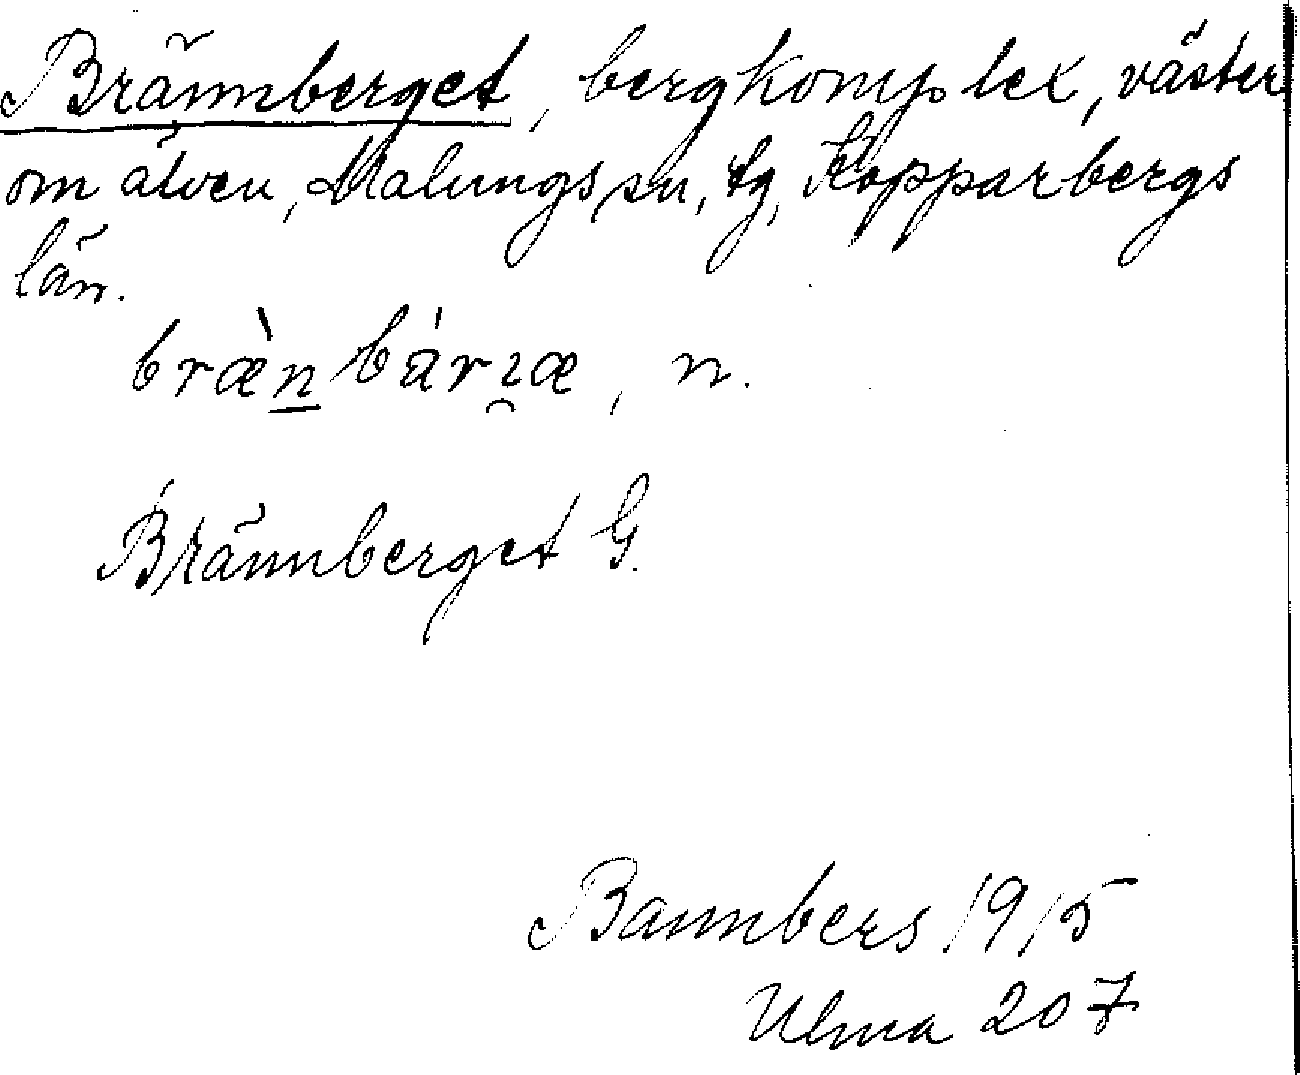 Brännberget, bergkomplex, väster
om älven, Malungs sn, tg, Kopparbergs
län.
bræ̀n bárɿæ, n.
Brännberget G.
Bannbers 1915
Ulma 207